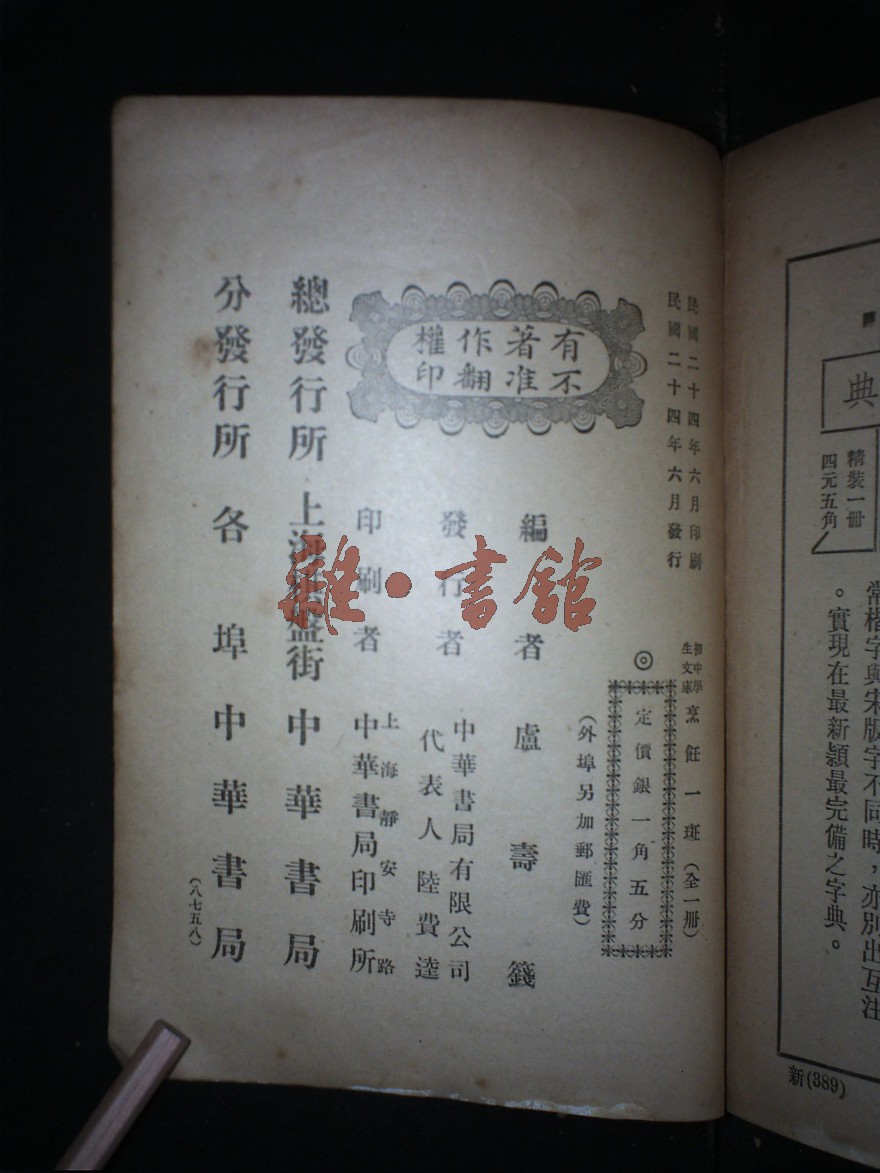 典
精裝一冊
四元五角
常楷字與宋版字不同時，亦別出互注
。實現在最新穎最完備之字典。
新(389)
民國二十四年六月印刷
民國二十四年六月發行
初中學生文庫 烹飪一斑（全一冊）
◎
定價銀一角五分
（外埠另加郵匯費）
有不著准作翻權印
編者 盧壽籛
發行者 中華書局有限公司
代表人 陸費逵
印刷者 上海靜安寺路
中華書局印刷所
總發行所 上海棋盤街 中華書局
分發行所 各埠中華書局
（八七五八）
雜·書館